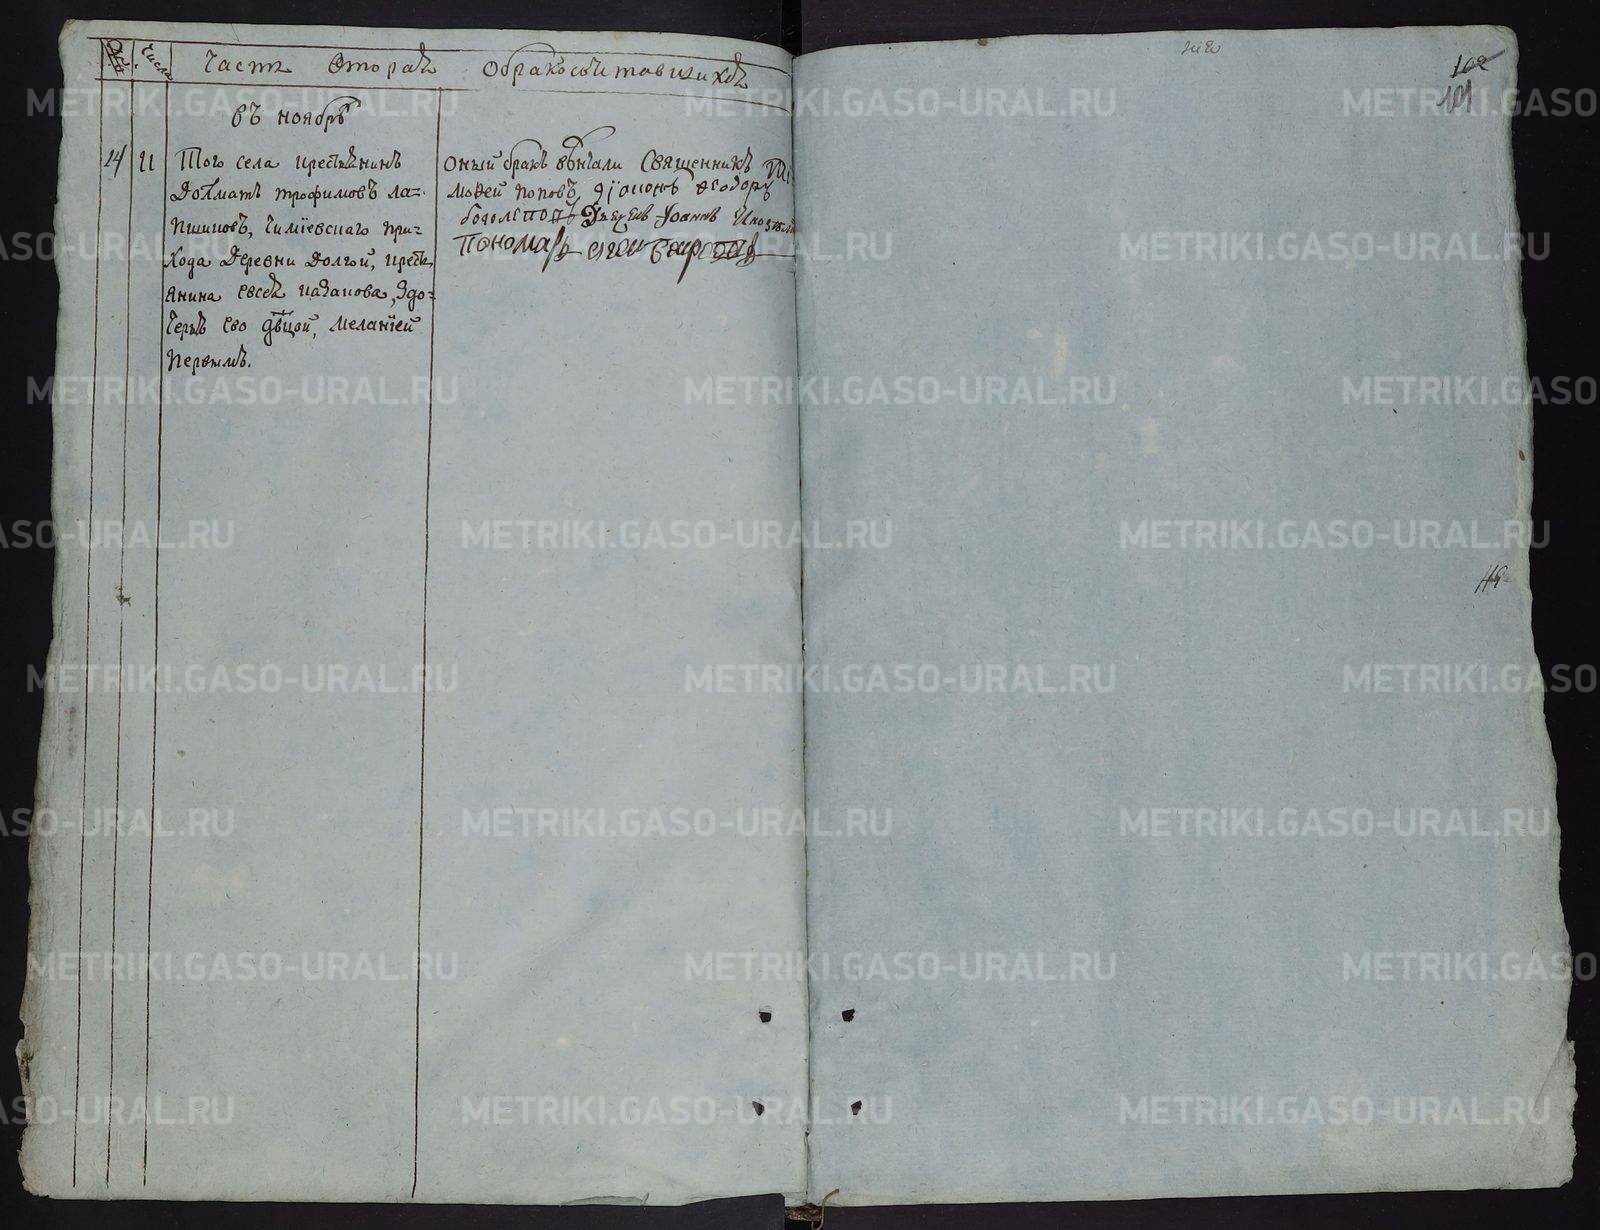 Числа
Часть Вторая о бракосочитавшихся
102
101
въ ноябрѣ
14 11 Того села крестьянинъ
Долматъ трофимовъ ла=
пшиновъ, при=
хода Деревни Долгой, кресть
янина евсея казакова, здо=
черью его дѣвцой, меланіей
первымъ.
Оный бракъ вѣнчали Священникъ Ти
мофей поповъ, діаконъ ѳеодоръ
боголеповъ Дьячекъ Іоаннъ
Пономарь
METRIKI.GASO-URAL.RU